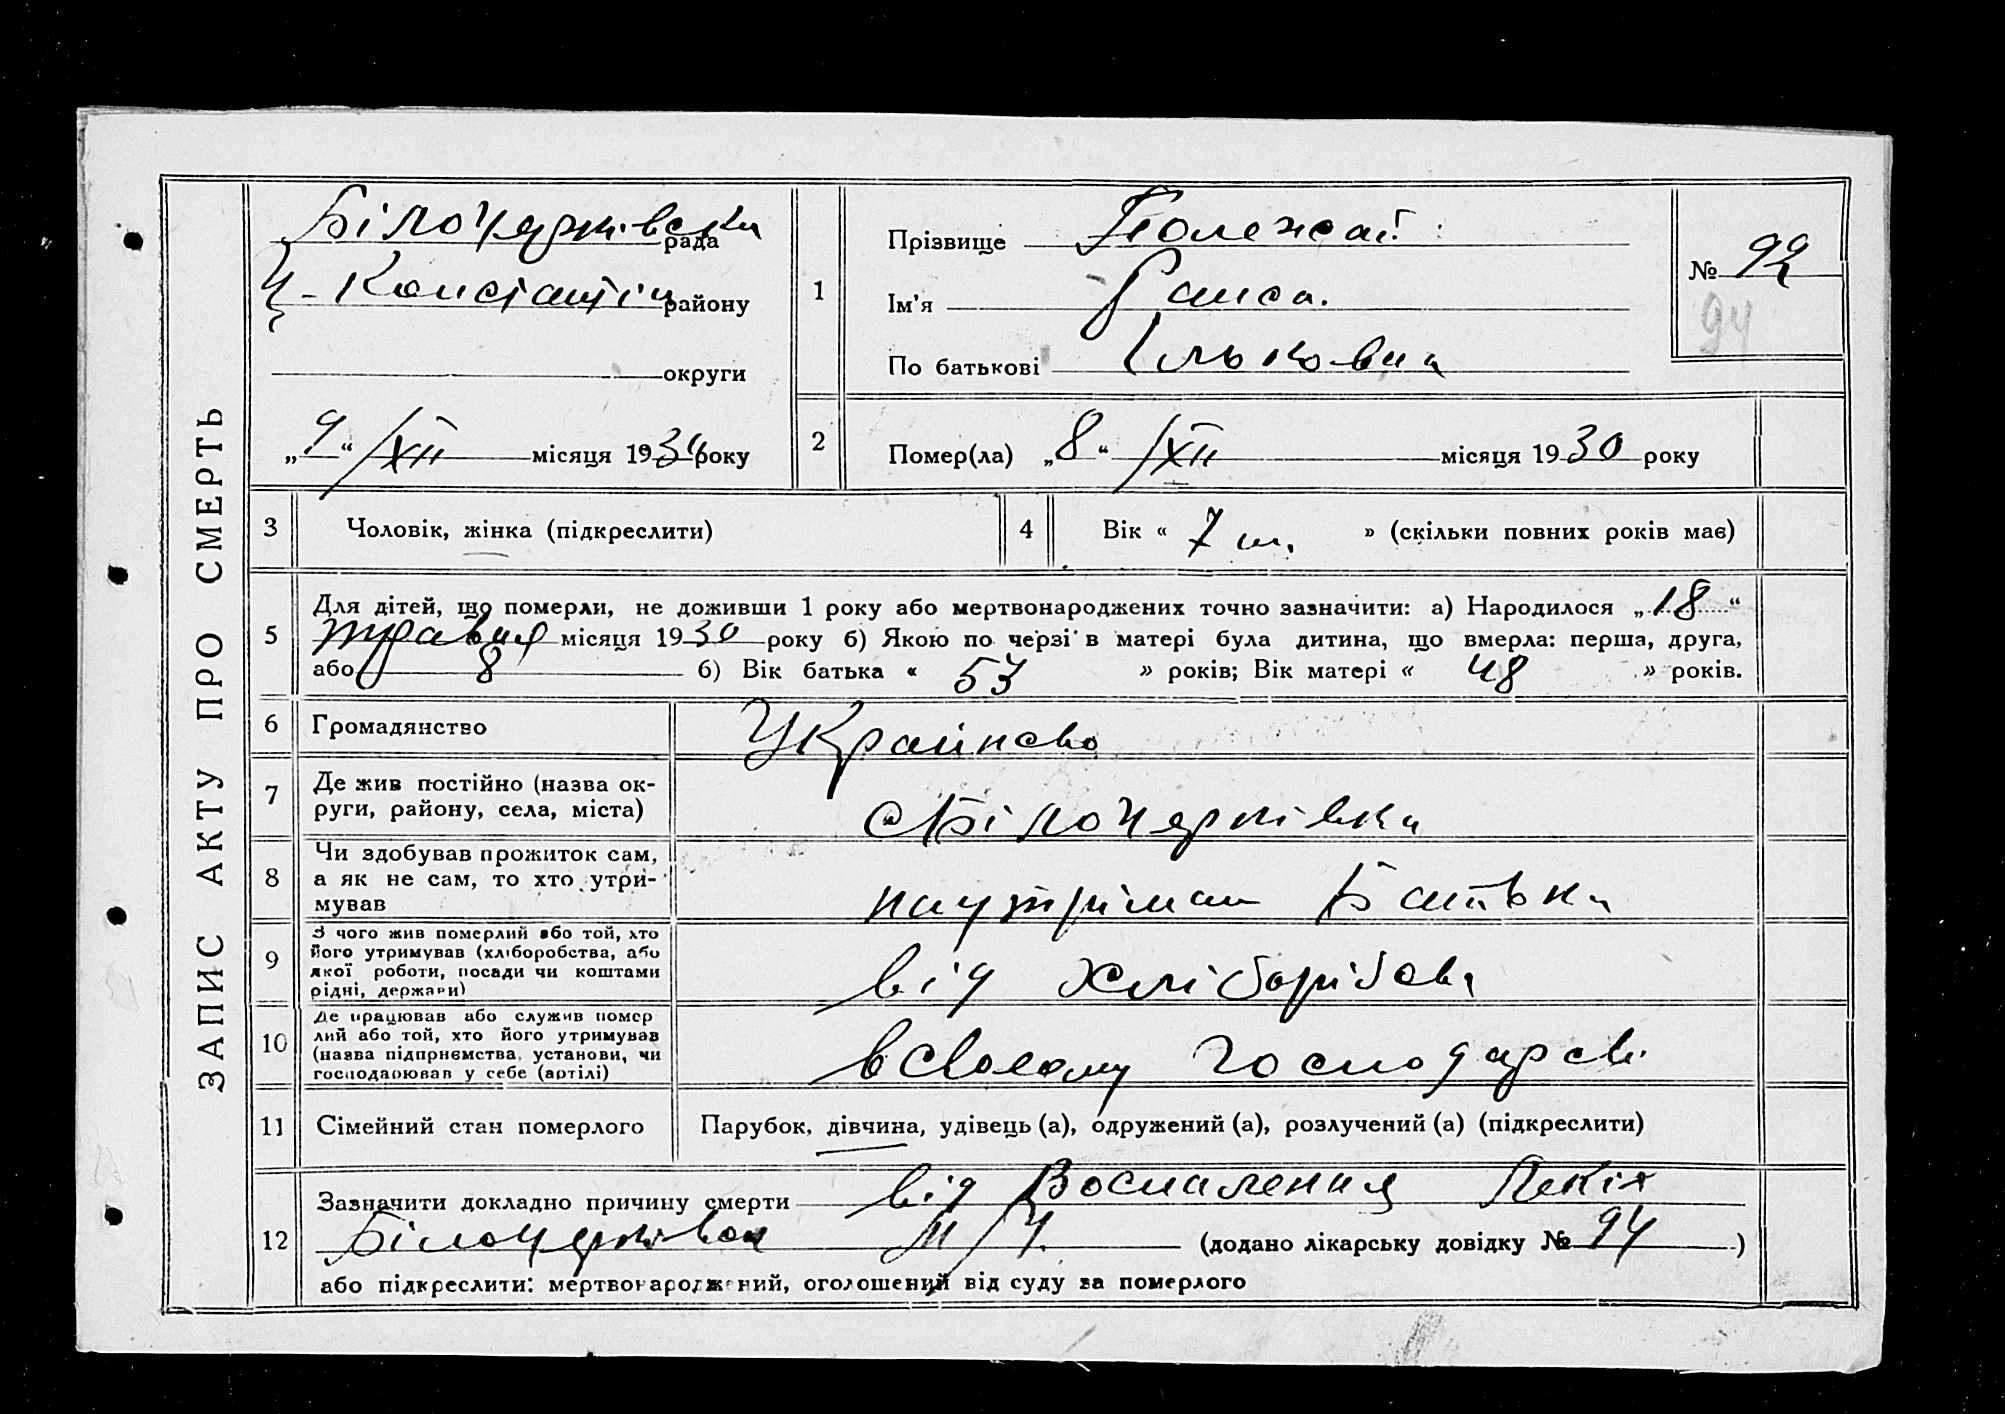 ЗАПИС АКТУ ПРО СМЕРТЬ
Білочерківська рада
Ц-Констянтін району
округи
„9“ /XII місяця 1930 року
1
Прізвище Полежай
Ім’я Раиса.
По батькові Ільковна
№ 92
94
2
Помер(ла) „8“ /XII місяця 1930 року
3
Чоловік, жінка (підкреслити)
4
Вік « 7 м. » (скільки повних років має)
5
Для дітей, що померли, не доживши 1 року або мертвонароджених точно зазначити: а) Народилося „18“
травня місяця 1930 року б) Якою по черзі в матері була дитина, що вмерла: перша, друга,
або 8 б) Вік батька « 53 » років; Вік матері « 48 » років.
6
Громадянство
Украінсько
7
Де жив постійно (назва ок-
руги, району, села, міста)
с Білочерківка
8
Чи здобував прожиток сам,
а як не сам, то хто утри-
мував
наутриман Батька
9
З чого жив померлий або той, хто
його утримував (хліборобства, або
якої роботи, посади чи коштами
рідні, держави)
від хліборібова
10
Де працював або служив помер
лий або той, хто його утримував
(назва підприємства, установи, чи
господарював у себе (артілі)
всвоєму господарсві
11
Сімейний стан померлого
Парубок, дівчина, удівець (а), одружений (а), розлучений (а) (підкреслити)
12
Зазначити докладно причину смерти від Воспаления Легкіх
Білочерківска М/Ч. (додано лікарську довідку № 94 )
або підкреслити: мертвонароджений, оголошений від суду за померлого